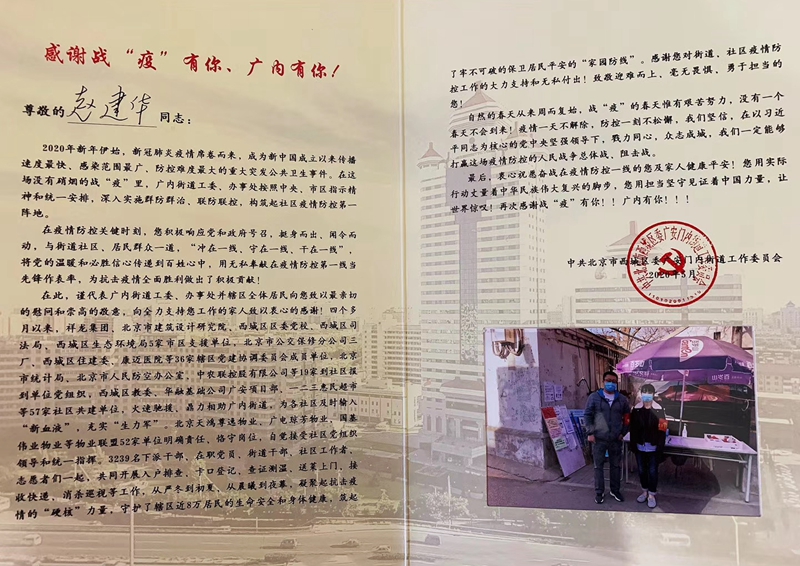 感谢战“疫”有你、广内有你！
尊敬的 赵建华 同志：
2020年新年伊始，新冠肺炎疫情席卷而来，成为新中国成立以来传播
速度最快、感染范围最广、防控难度最大的重大突发公共卫生事件。在这
场没有硝烟的战“疫”里，广内街道工委、办事处按照中央、市区指示精
神和统一安排，深入实施群防群治、联防联控，构筑起社区疫情防控第一
阵地。
在疫情防控关键时刻，您积极响应党和政府号召，挺身而出、闻令而
动，与街道社区、居民群众一道，“冲在一线、守在一线、干在一线”，
将党的温暖和必胜信心传递到百姓心中，用无私奉献在疫情防控第一线当
先锋作表率，为抗击疫情全面胜利做出了积极贡献！
在此，谨代表广内街道工委、办事处并辖区全体居民向您致以最亲切
的慰问和崇高的敬意，向全力支持您工作的家人致以衷心的感谢！四个多
月以来，祥龙集团、北京市建筑设计研究院，西城区区委党校，西城区司
法局，西城区生态环境局5家市区支援单位，北京市公交保修分公司三
厂、西城区住建委、康迈医药等36家辖区党建协调委员会成员单位，北京
市统计局，北京市人民防空办公室，中京联控股有限公司等19家到社区报
到单位党组织，西城区教委、华融基础公司广安项目部、一二三惠民超市
等57家社区共建单位，火速驰援，鼎力相助广内街道，为各社区及时输入
“新血液”，充实“生力军”，北京天鸿尊速物业、广电琼芳物业、国基
伟业物业等物业联盟52家单位明确责任、恪守岗位，自觉接受社区党组织
领导和统一指挥，3239名下派干部、在职党员、街道干部、社区工作者、
志愿者们一起，共同开展入户排查、卡口登记、查证测温、送菜上门、接
收快递、消杀巡视等工作，从严冬到初夏，从晨曦到夜幕，凝聚起抗击疫
情的“硬核”力量，守护了辖区近8万居民的生命安全和身体健康，筑起
了牢不可破的保卫居民平安的“家园防线”。感谢您对街道、社区疫情防
控工作的大力支持和无私付出！致敬迎难而上、毫无畏惧、勇于担当的
您！
自然的春天从来周而复始，战“疫”的春天惟有艰苦努力，没有一个
春天不会到来！疫情一天不解除，防控一刻不松懈，我们坚信，在以习近
平同志为核心的党中央坚强领导下，戮力同心，众志成城，我们一定能够
打赢这场疫情防控的人民战争总体战、阻击战。
最后，衷心祝愿奋战在疫情防控一线的您及家人健康平安！您用实际
行动丈量着中华民族伟大复兴的脚步，您用担当坚守见证着中国力量，让
世界惊叹！再次感谢战“疫”有你！！广内有你！！！
中共北京市西城区委广安门内街道工作委员会
2020年5月